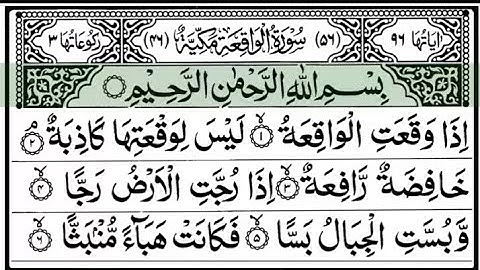 اٰیاتہا ۹۶ (۵۶) سُوْرَةُ الْوَاقِعَةِ مَكِّیَّةٌ (۴۶) رکوعاتہا ۳
بِسْمِ اللّٰهِ الرَّحْمٰنِ الرَّحِیْمِ
اِذَا وَقَعَتِ الْوَاقِعَةُ ۙ﴿۱﴾ لَیْسَ لِوَقْعَتِهَا كَاذِبَةٌ ۘ﴿۲﴾
خَافِضَةٌ رَّافِعَةٌ ۙ﴿۳﴾ اِذَا رُجَّتِ الْاَرْضُ رَجًّا ۙ﴿۴﴾
وَّ بُسَّتِ الْجِبَالُ بَسًّا ۙ﴿۵﴾ فَكَانَتْ هَبَآءً مُّنْۢبَثًّا ۙ﴿۶﴾